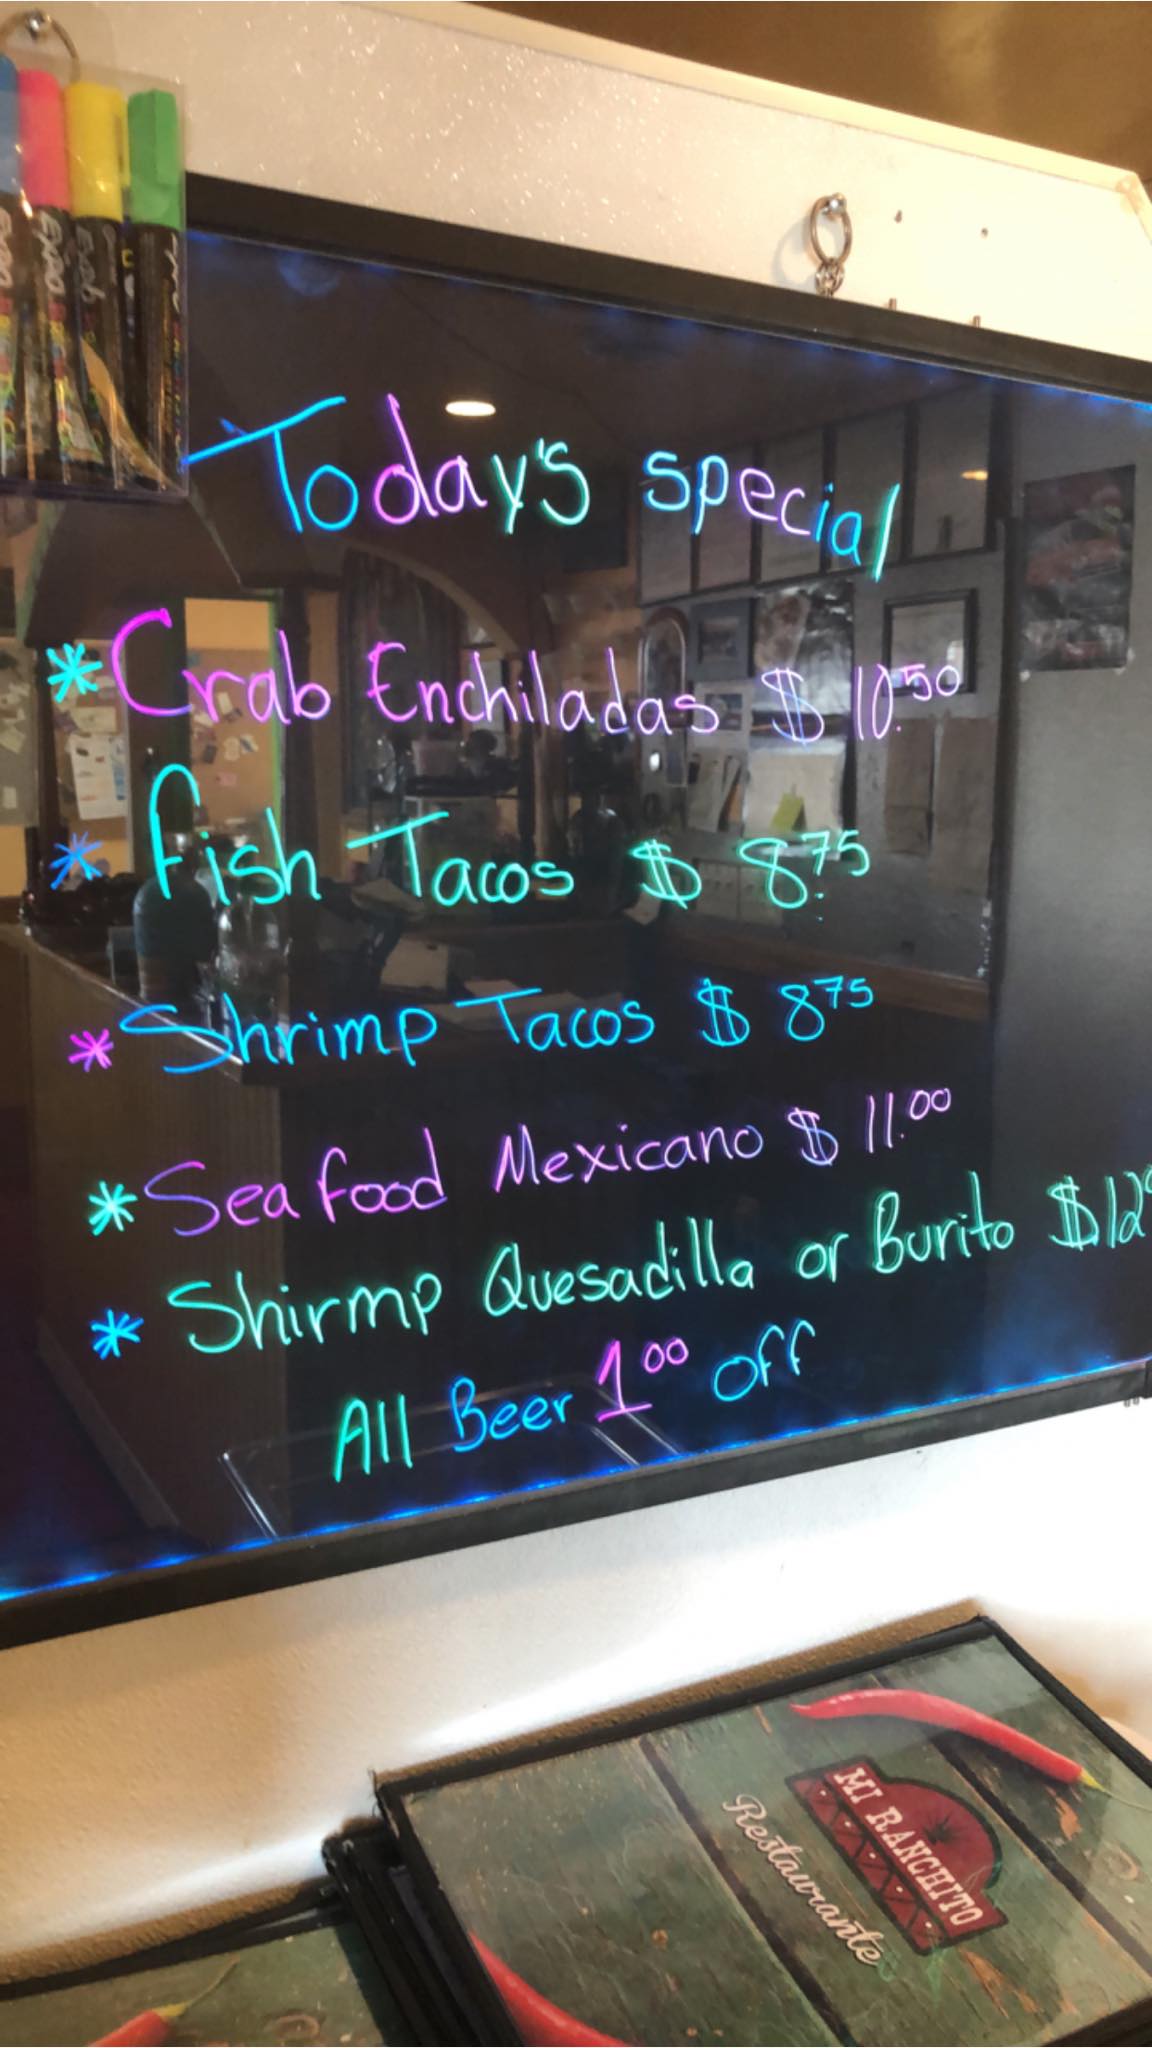 Today's special
* Crab Enchiladas $ 10.50
* Fish Tacos $ 8.75
* Shrimp Tacos $ 8 75
* Sea food Mexicano $ 11.00
* Shirmp Quesadilla or Burito $12
All Beer 1 00 off
MI RANCHITO
Restaurante
Expo
Expo
Expo